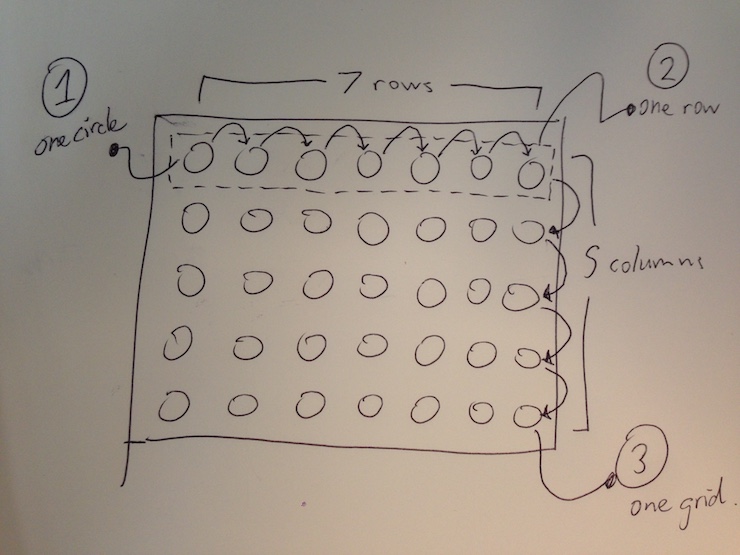 1
one circle
7 rows
2
one row
5 columns
3
one grid.